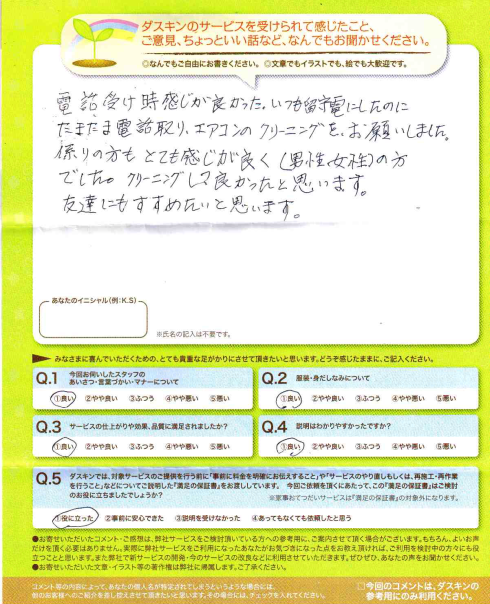 ダスキンのサービスを受けられて感じたこと、
ご意見、ちょっといい話など、なんでもお聞かせください。
◎なんでもご自由にお書きください。◎文章でもイラストでも、絵でも大歓迎です。
電話受け時感じが良かった。いつも留守電にしたのに
たまたま電話取り、エアコンのクリーニングを、お願いしました。
係りの方も とても感じが良く (男性、女性)の方
でした。クリーニングして良かったと思います。
友達にもすすめたいと思います。
あなたのイニシャル(例:K.S)
※氏名の記入は不要です。
みなさまに喜んでいただくための、とても貴重な足がかりにさせて頂きたいと思います。どうぞ感じたままに、ご記入ください。
Q.1 今回お伺いしたスタッフの
あいさつ・言葉づかい・マナーについて
①良い ②やや良い ③ふつう ④やや悪い ⑤悪い
Q.2 服装・身だしなみについて
①良い ②やや良い ③ふつう ④やや悪い ⑤悪い
Q.3 サービスの仕上がりや効果、品質に満足されましたか?
①良い ②やや良い ③ふつう ④やや悪い ⑤悪い
Q.4 説明はわかりやすかったですか?
①良い ②やや良い ③ふつう ④やや悪い ⑤悪い
Q.5 ダスキンでは、対象サービスのご提供を行う前に「事前に料金を明確にお伝えすること」や「サービスのやり直しもしくは、再施工・再作業
を行うこと」などについてご説明した『満足の保証書』をお渡ししています。 今回ご依頼を頂くにあたって、この『満足の保証書』はご検討
のお役に立ちましたでしょうか?
※家事おてつだいサービスは『満足の保証書』の対象外になります。
①役に立った ②事前に安心できた ③説明を受けなかった ④あってもなくても依頼したと思う
●お寄せいただいたコメント・ご感想は、弊社サービスをご検討頂いている方への参考用に、ご案内させて頂く場合がございます。もちろん、よいお声
だけを頂く必要はありません。実際に弊社サービスをご利用になったあなたがお気づきになった点をお教え頂ければ、ご利用を検討中の方々にも役
立つことと思います。また弊社で新サービスの開発・今のサービスの改良などに利用させていただきます。ぜひぜひ、あなたの声をお聞かせください。
●お寄せいただいた文章・イラスト等の著作権は弊社に帰属します。ご了承ください。
コメント等の内容によって、あなたの個人名が特定されてしまうというような場合には、
他のお客様へのご紹介を差し控えさせて頂きたいと思います。その場合には、チェックを入れてください。
□今回のコメントは、ダスキンの
参考用にのみ利用ください。